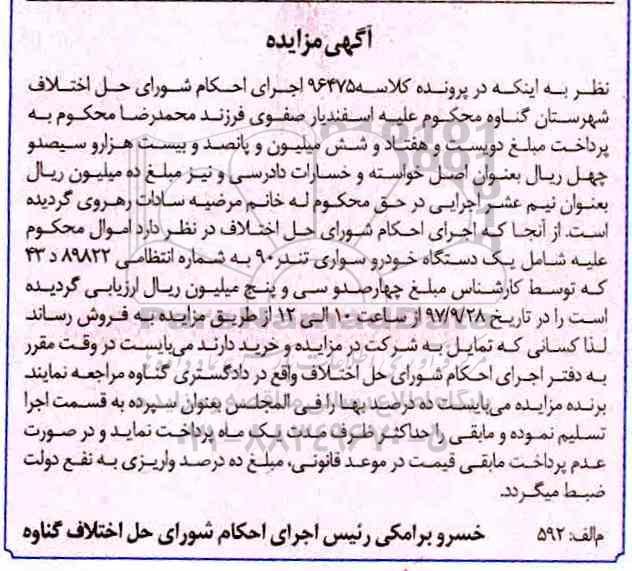 آگهی مزایده
نظر به اینکه در پرونده کلاسه۹۶۴۷۵ اجرای احکام شورای حل اختلاف
شهرستان گناوه محکوم علیه اسفندیار صفوی فرزند محمدرضا محکوم به
پرداخت مبلغ دویست و هفتاد و شش میلیون و پانصد و بیست هزارو سیصدو
چهل ریال بعنوان اصل خواسته و خسارات دادرسی و نیز مبلغ ده میلیون ریال
بعنوان نیم عشر اجرایی در حق محکوم له خانم مرضیه سادات رهروی گردیده
است. از آنجا که اجرای احکام شورای حل اختلاف در نظر دارد اموال محکوم
علیه شامل یک دستگاه خودرو سواری تندر۹۰ به شماره انتظامی ۸۹۸۲۲ د ۴۳
که توسط کارشناس مبلغ چهارصدو سی و پنج میلیون ریال ارزیابی گردیده
است را در تاریخ ۹۷/۹/۲۸ از ساعت ۱۰ الی ۱۲ از طریق مزایده به فروش رساند
لذا کسانی که تمایل به شرکت در مزایده و خرید دارند می‌بایست در وقت مقرر
به دفتر اجرای احکام شورای حل اختلاف واقع در دادگستری گناوه مراجعه نمایند
برنده مزایده می‌بایست ده درصد بها را فی المجلس بعنوان سپرده به قسمت اجرا
تسلیم نموده و مابقی را حداکثر ظرف مدت یک ماه پرداخت نماید و در صورت
عدم پرداخت مابقی قیمت در موعد قانونی، مبلغ ده درصد واریزی به نفع دولت
ضبط میگردد.
م‌الف: ۵۹۲ خسرو برامکی رئیس اجرای احکام شورای حل اختلاف گناوه